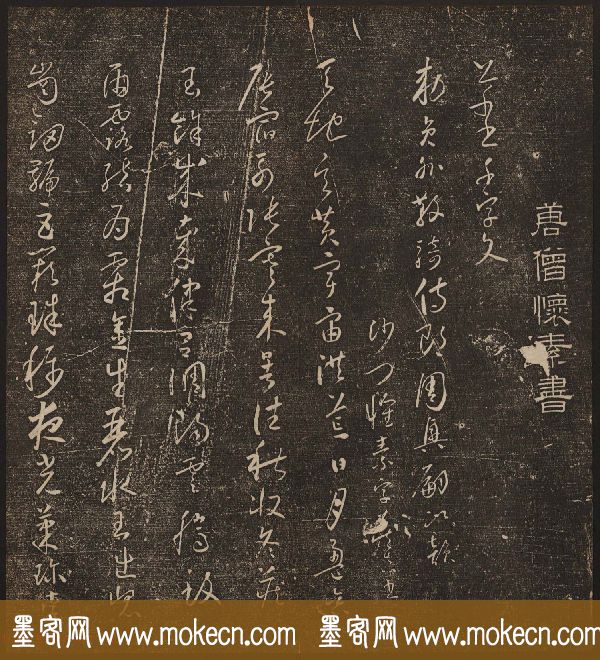 唐僧懷素書
千字文
勅員外散騎侍郎周興嗣次韻
沙門懷素字藏真書
天地玄黃宇宙洪荒日月盈昃
辰宿列張寒來暑往秋收冬藏
閏餘成歲律呂調陽雲騰致
雨露結為霜金生麗水玉出崑
崗劍號巨闕珠稱夜光菓珍李
墨客网 www.mokecn.com 墨客网 www.mokecn.com